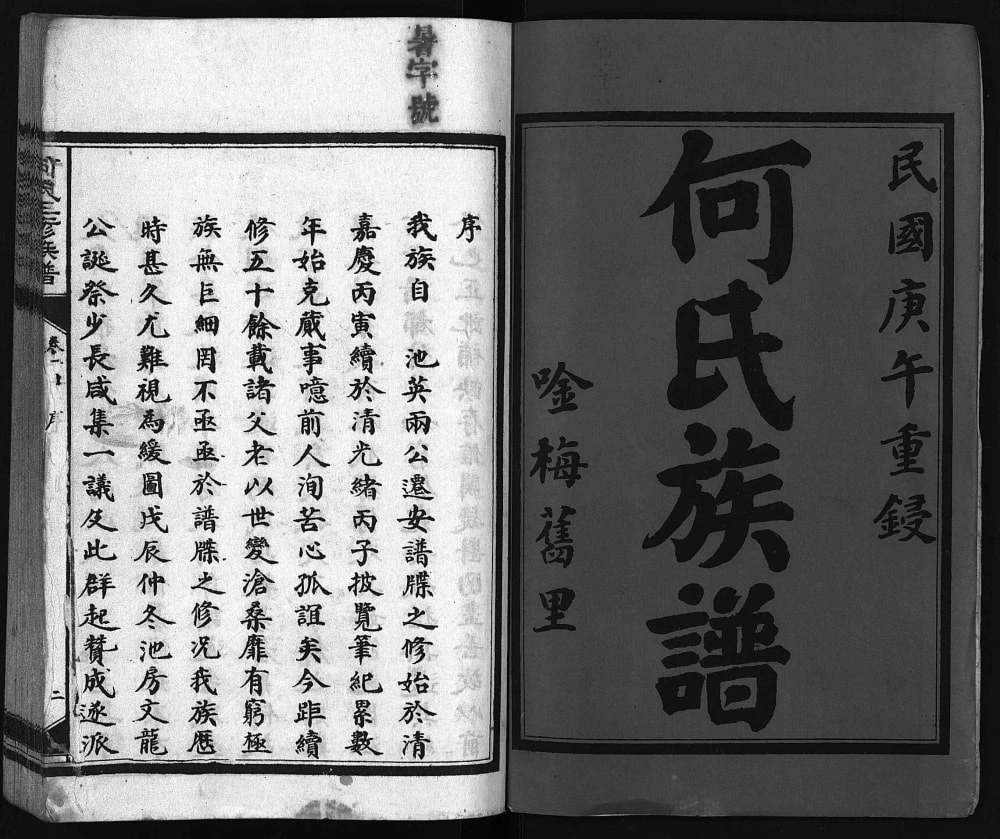 民國庚午重鋟
何氏族譜
唫梅舊里
暑字號
序
我族自 池英兩公遷安譜牒之修始於清
嘉慶丙寅續於清光緒丙子披覽筆紀累數
年始克蕆事噫前人洵苦心孤誼矣今距續
修五十餘載諸父老以世變滄桑靡有窮極
族無巨細罔不亟亟於譜牒之修況我族歷
時甚久尤難視為緩圖戊辰仲冬池房文龍
公誕祭少長咸集一議及此群起贊成遂派
何氏三修族譜
卷一上
序
二